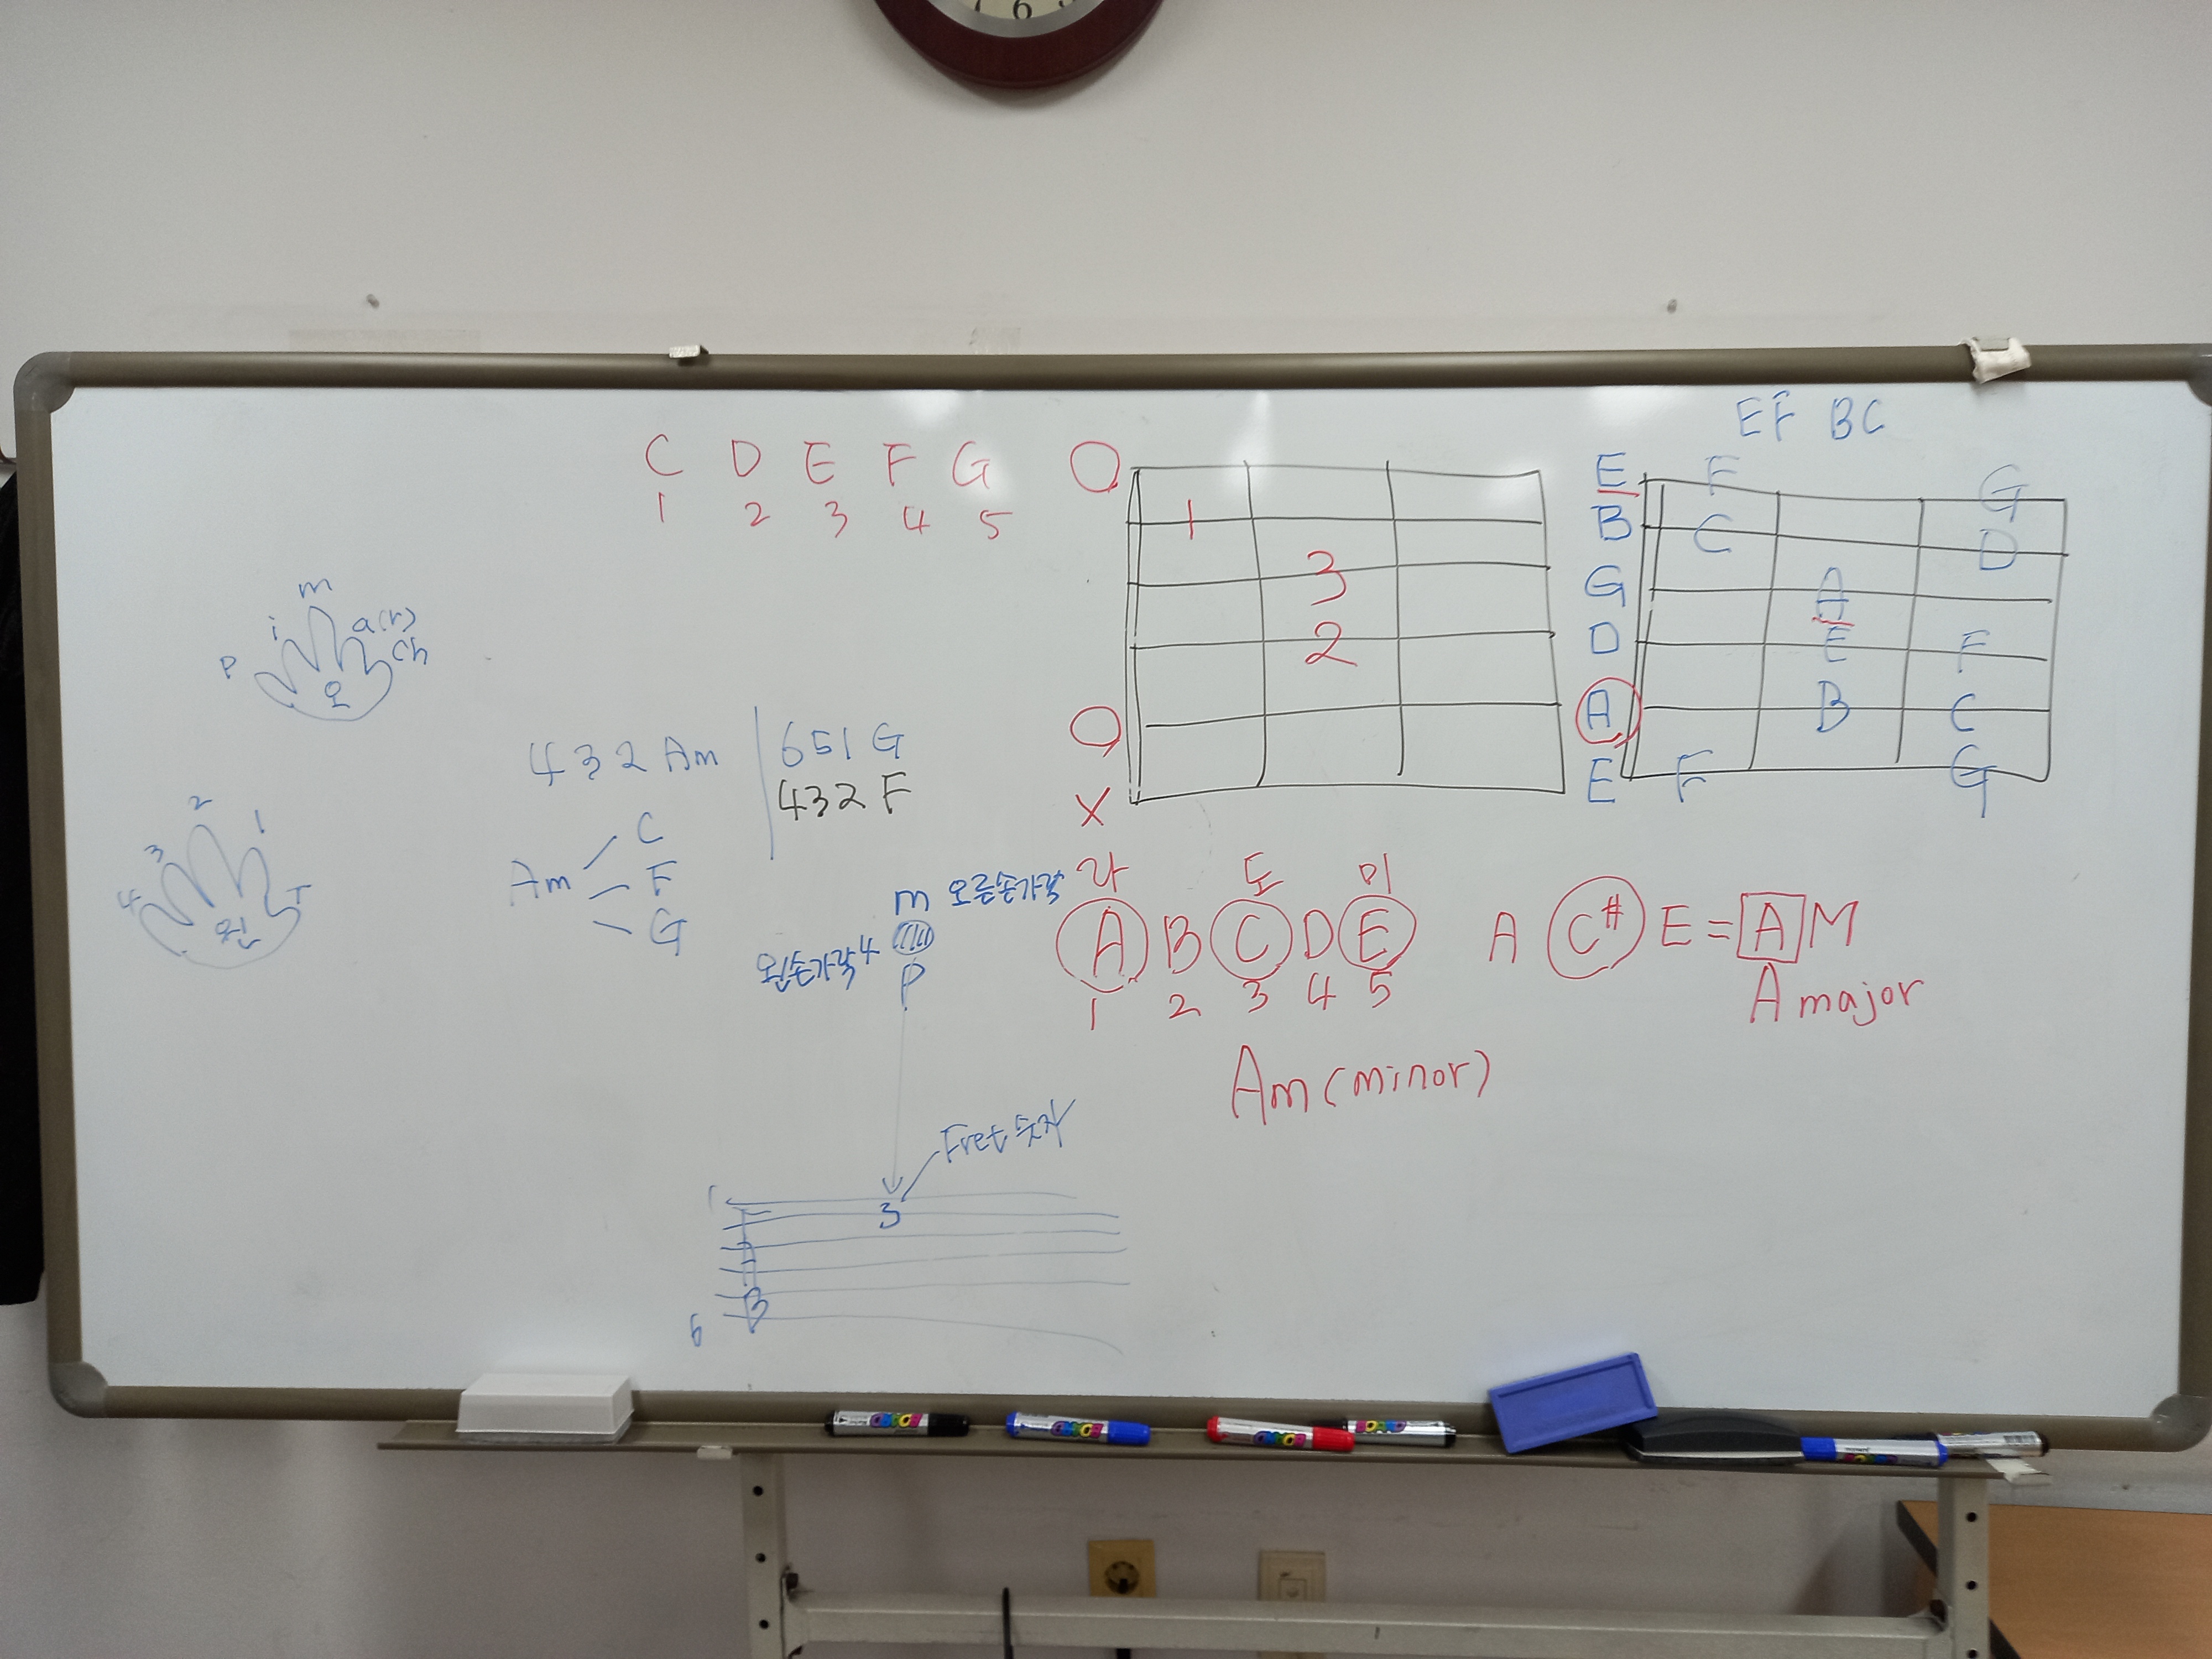 6
EF BC
C D E F G
1 2 3 4 5
O
1
3
2
O
X
E F G
B C D
G A
D E F
A B C
E F G
m
i a(r)
P ch
오
432 Am
651 G
432 F
2
3 1
4 T
왼
C
Am F
G
m 오른손가락
왼손가락4
P
라 도 미
A B C D E
1 2 3 4 5
A C# E = A M
A major
Am (minor)
Fret 숫자
1
3
T
A
B
6
BOARD
BOARD
BOARD
BOARD